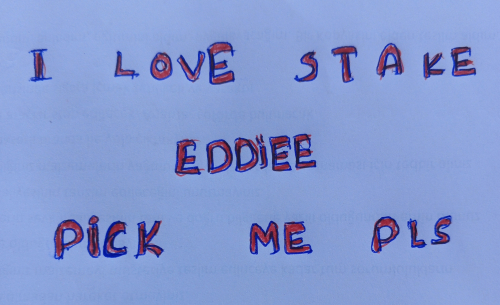 I LOVE STAKE
EDDiEE
PiCK ME PLS